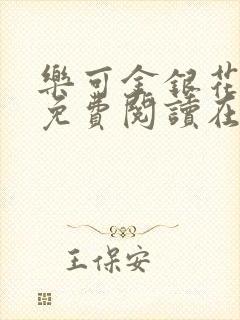 樂可金銀花
免費閱讀在
王保安